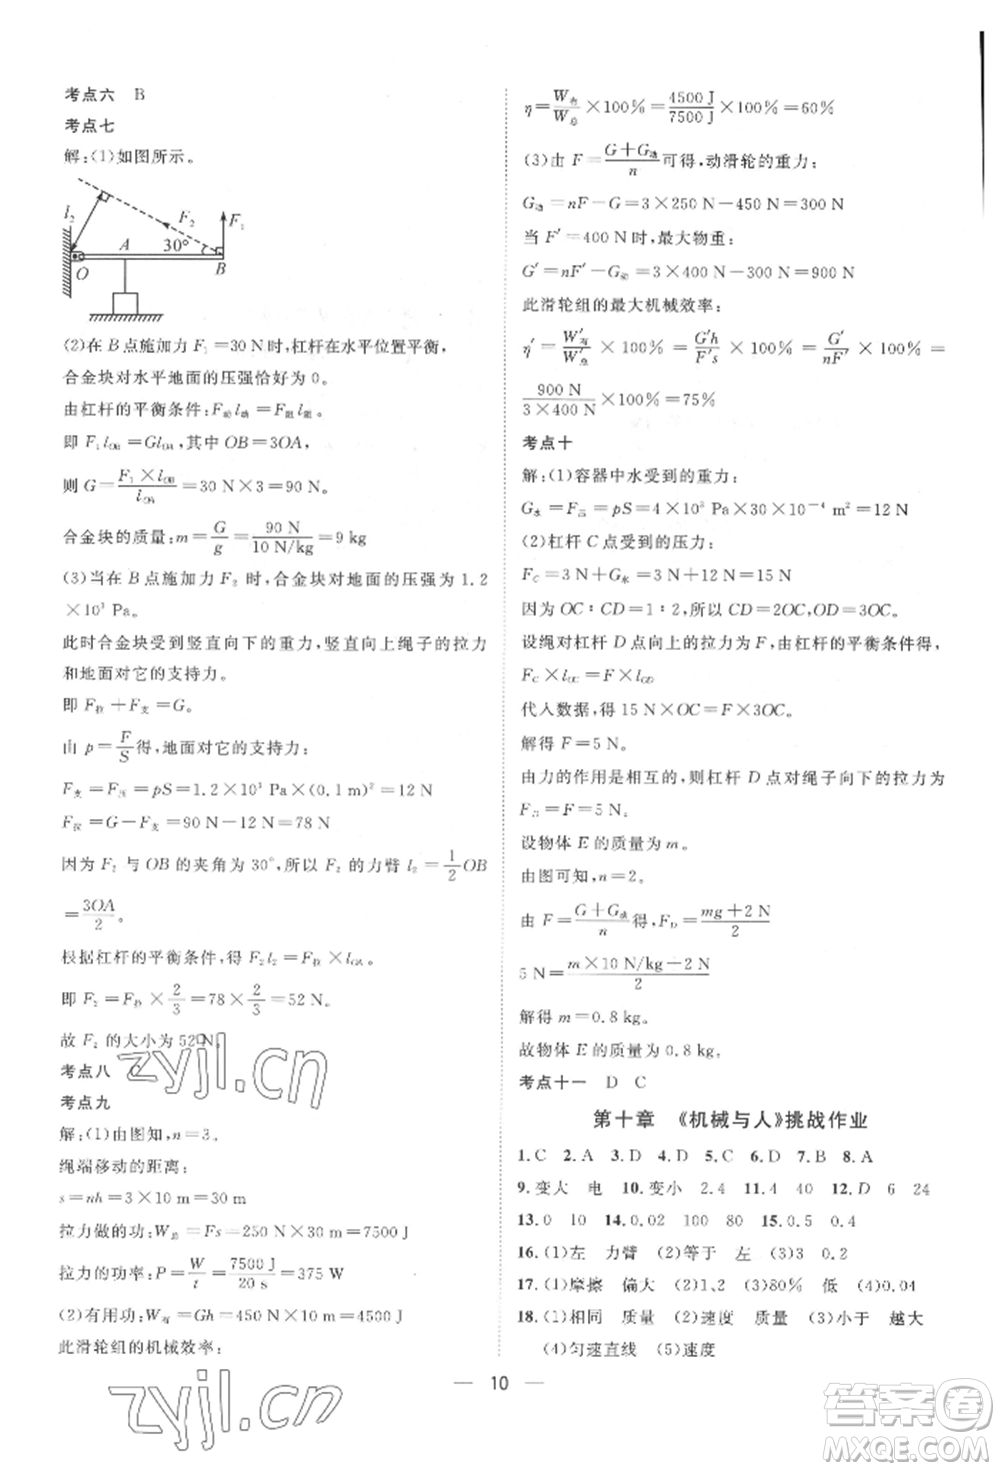 考点六　B
考点七
解:(1)如图所示。
l₂ F₂ F₁ A 30° O B
(2)在 B 点施加力 F₁=30 N时,杠杆在水平位置平衡,
合金块对水平地面的压强恰好为 0。
由杠杆的平衡条件:F动l动=F阻l阻,
即 F₁l_OB=Gl_OA,其中 OB=3OA,
则 G=(F₁×l_OB)/l_OA=30 N×3=90 N。
合金块的质量:m=G/g=90 N/(10 N/kg)=9 kg
(3)当在 B 点施加力 F₂ 时,合金块对地面的压强为 1.2
×10³ Pa。
此时合金块受到竖直向下的重力,竖直向上绳子的拉力
和地面对它的支持力。
即 F拉+F支=G。
由 p=F/S得,地面对它的支持力:
F支=F压=pS=1.2×10³ Pa×(0.1 m)²=12 N
F拉=G-F支=90 N-12 N=78 N
因为 F₂ 与 OB 的夹角为 30°,所以 F₂ 的力臂 l₂=1/2 OB
=3OA/2。
根据杠杆的平衡条件,得 F₂l₂=F拉×l_OA。
即 F₂=F拉×2/3=78×2/3=52 N。
故 F₂ 的大小为 52 N。
考点八
考点九
解:(1)由图知,n=3。
绳端移动的距离:
s=nh=3×10 m=30 m
拉力做的功:W总=Fs=250 N×30 m=7500 J
拉力的功率:P=W/t=7500 J/20 s=375 W
(2)有用功:W有=Gh=450 N×10 m=4500 J
此滑轮组的机械效率:
η=W有/W总×100%=4500 J/7500 J×100%=60%
(3)由 F=(G+G动)/n可得,动滑轮的重力:
G动=nF-G=3×250 N-450 N=300 N
当 F′=400 N时,最大物重:
G′=nF′-G动=3×400 N-300 N=900 N
此滑轮组的最大机械效率:
η′=W′有/W′总×100%=G′h/F′s×100%=G′/nF′×100%=
900 N/(3×400 N)×100%=75%
考点十
解:(1)容器中水受到的重力:
G水=F压=pS=4×10³ Pa×30×10⁻⁴ m²=12 N
(2)杠杆 C 点受到的压力:
F_C=3 N+G水=3 N+12 N=15 N
因为 OC∶CD=1∶2,所以 CD=2OC。
设绳对杠杆 D 点向上的拉力为 F,由杠杆的平衡条件得,
F_C×l_OC=F×l_OD
代入数据,得 15 N×OC=F×3OC。
解得 F=5 N。
由力的作用是相互的,则杠杆 D 点对绳子向下的拉力为
F_D=F=5 N。
设物体 E 的质量为 m。
由图可知,n=2。
由 F=(G+G动)/n得,F_D=(mg+2 N)/2
5 N=(m×10 N/kg-2 N)/2
解得 m=0.8 kg。
故物体 E 的质量为 0.8 kg。
考点十一　D　C
第十章　《机械与人》挑战作业
1.C　2.A　3.D　4.D　5.C　6.D　7.B　8.A
9.变大　电　10.变小　2.4　11.4　40　12.D　6　24
13.0　10　14.0.02　100　80　15.0.5　0.4
16.(1)左　力臂　(2)等于　左　(3)3　0.2
17.(1)摩擦　偏大　(2)1.2　(3)80%　低　(4)0.04
18.(1)相同　质量　(2)速度　质量　(3)小于　越大
(4)匀速直线　(5)速度
10
zyjl.cn
zyjl.cn
答案圈
MXQE.COM